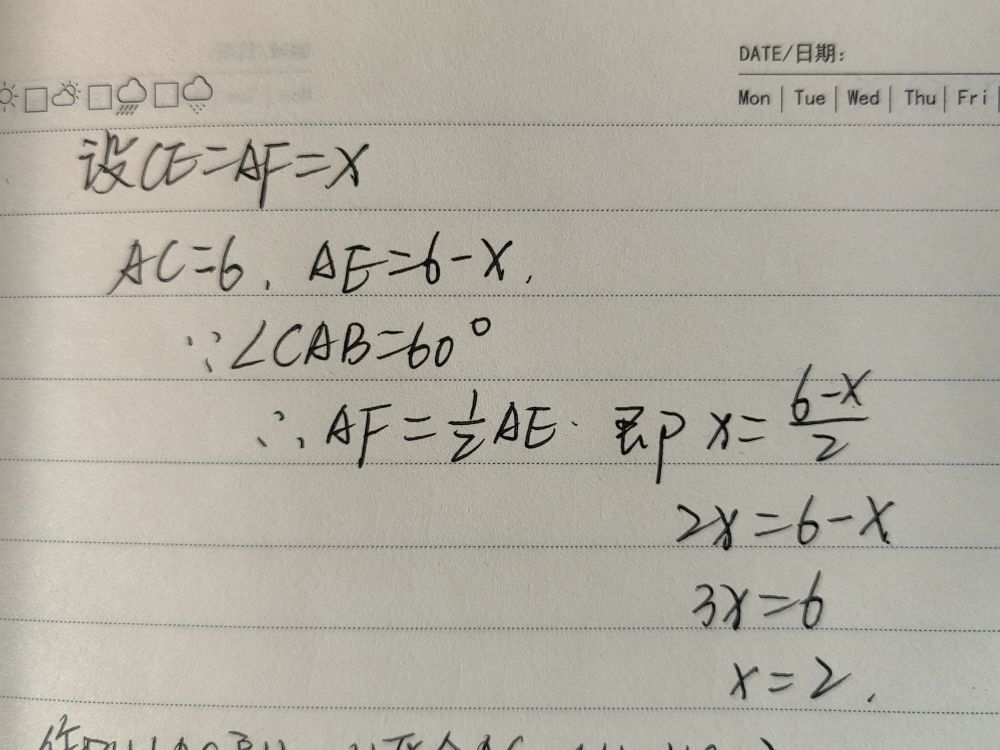 DATE/日期:
Mon Tue Wed Thu Fri
设CE=AF=x
AC=6, AE=6-x,
∵∠CAB=60°
∴AF=1/2AE. 即 x=(6-x)/2
2x=6-x
3x=6
x=2.